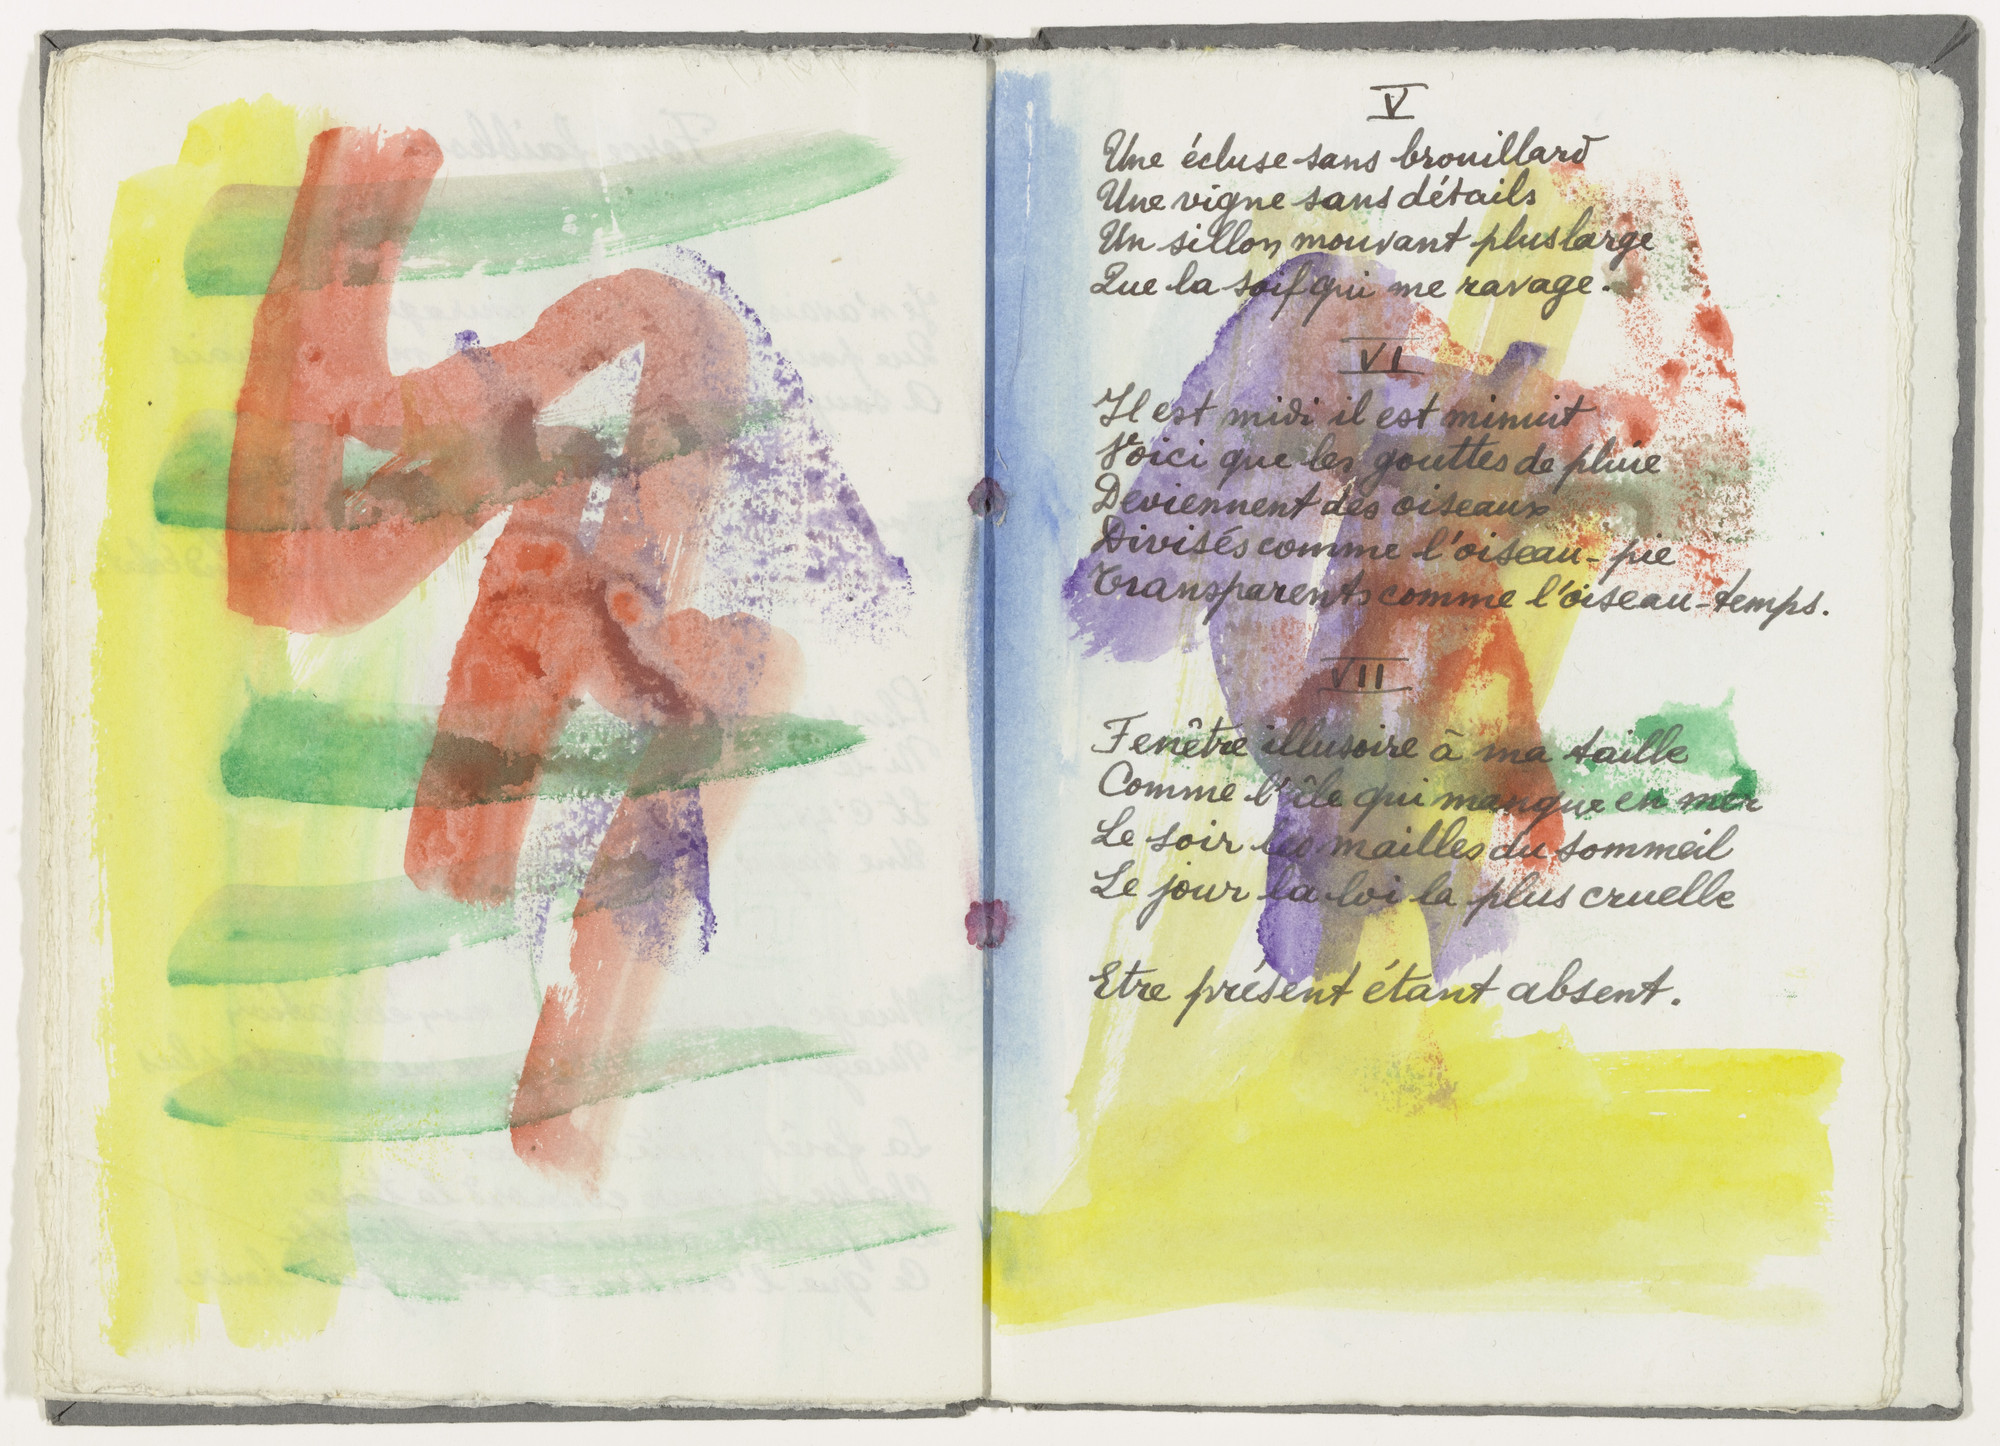 V
Une écluse sans brouillard
Une vigne sans détails
Un sillon mouvant plus large
Que la soif qui me ravage.
VI
Il est midi il est minuit
Voici que les gouttes de pluie
Deviennent des oiseaux
Divisés comme l'oiseau-pie
Transparents comme l'oiseau-temps.
VII
Fenêtre illusoire à ma taille
Comme l'île qui manque en mer
Le soir les mailles du sommeil
Le jour la loi la plus cruelle
Etre présent étant absent.